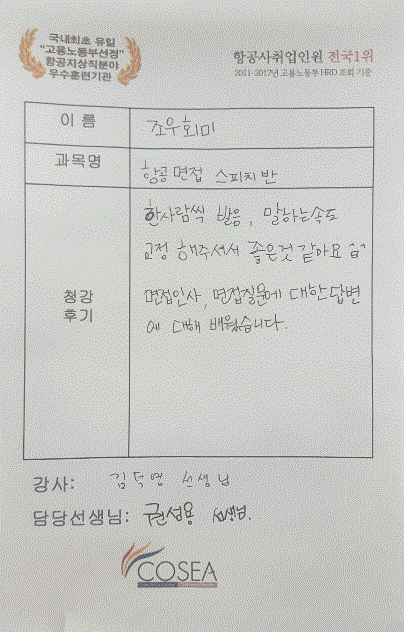 국내최초 유일
"고용노동부선정"
항공지상직분야
우수훈련기관
항공사취업인원 전국1위
2011-2017년 고용노동부 HRD 조회 기준
이 름
조우회미
과목명
항공면접 스피치반
청강
후기
한사람씩 발음, 말하는속도
교정 해주셔서 좋은것 같아요
면접인사, 면접질문에 대한 답변
에 대해 배웠습니다.
강사: 김덕영 선생님
담당선생님: 권성용 선생님.
COSEA